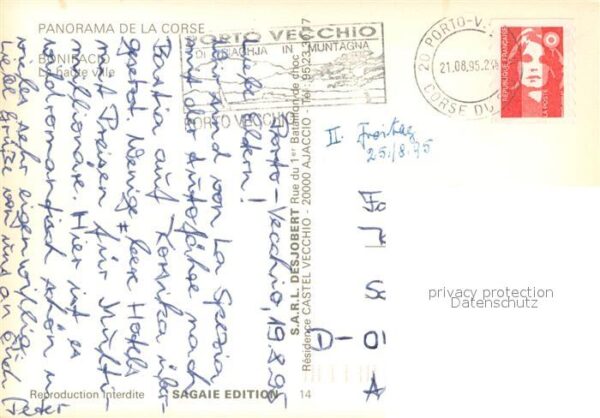 PANORAMA DE LA CORSE
BONIFACIO
La haute ville
PORTO VECCHIO
DI PIAGHJA IN MUNTAGNA
PORTO VECCHIO
20 PORTO-V
21.08.95
CORSE DU
REPUBLIQUE FRANCAISE
LA POSTE
II. Freitag
25./8.95
Porto-Vecchio, 19.8.95
Liebe Eltern!
Wir sind von La Spezia
mit der Autofähre nach
Bastia auf Korsika über-
gesetzt. Wenige leere Hotels
mit Preisen für Multi-
millionäre. Hier ist es
landromantisch schön u.
wieder sehr eigenwillig.
Liebe Grüße von uns an Euch
Peter
S.A.R.L. DESJOBERT Rue du 1er Bataillon de choc
Résidence CASTEL VECCHIO - 20000 AJACCIO - Tél. 95.23.30.17
D-
A
privacy protection
Datenschutz
Reproduction Interdite
SAGAIE EDITION
14